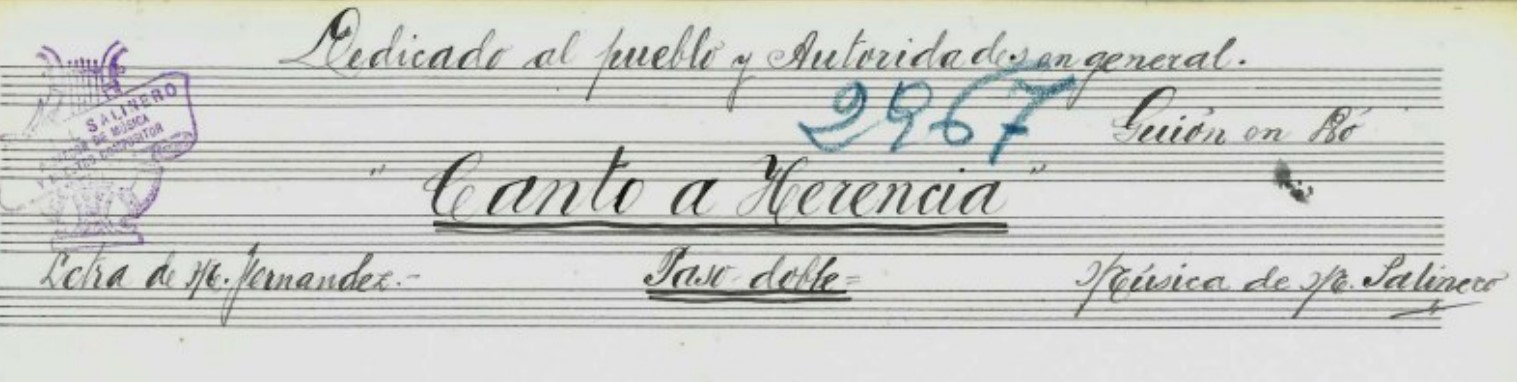 Dedicado al pueblo y Autoridades en general.
2967
Guión en
SALINERO
DE MÚSICA
COMPOSITOR
"Canto a Herencia"
Letra de M. Fernandez.-
Paso-doble=
Música de M. Salinero